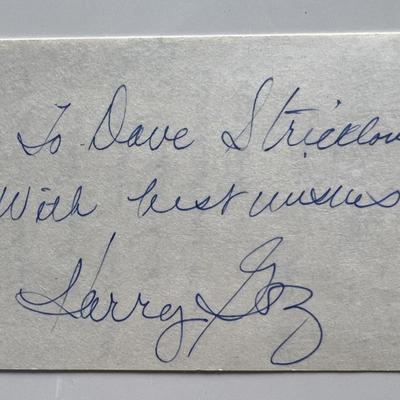 To Dave Stricklow
With best wishes
Harry Goz